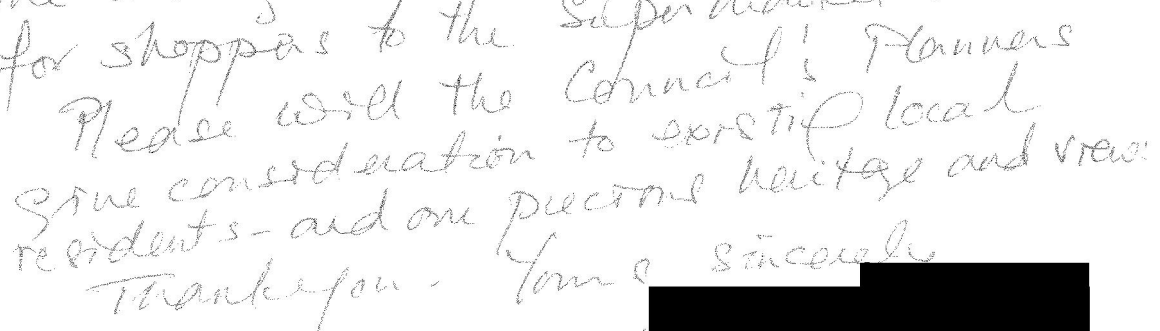 for shoppers to the Supermarket
Please will the Council! Planners
give consideration to existing local
residents - and our precious heritage and views
Thankyou. Yours sincerely